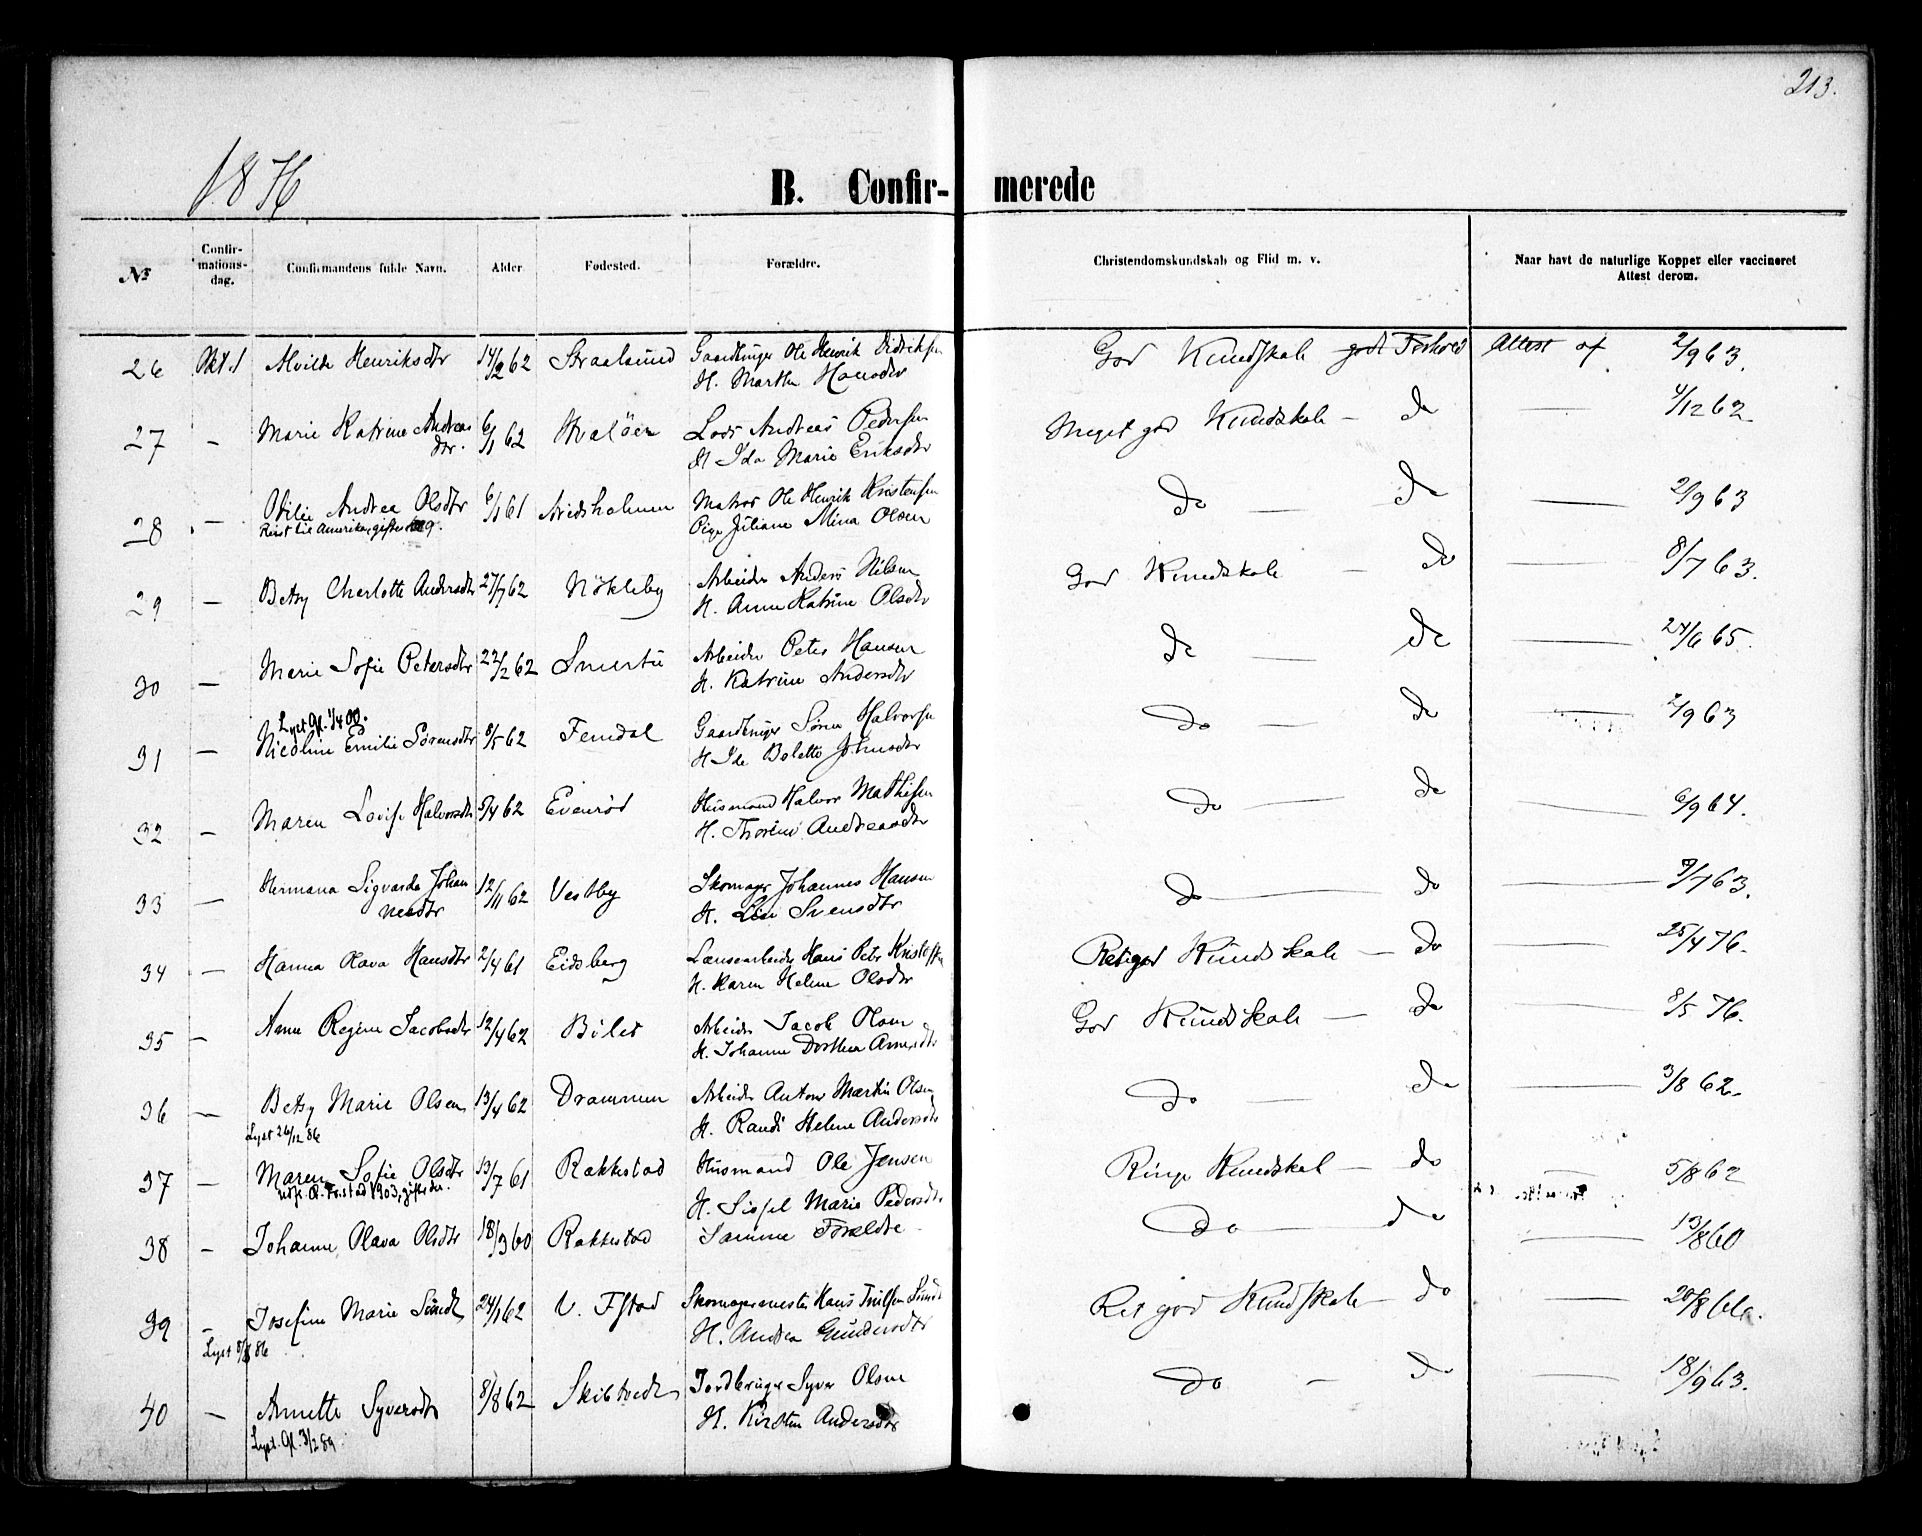 213.
1876
B. Confir- merede
№ Confir-mations-dag. Confirmandens fulde Navn. Alder Fødested. Forældre. Christendomskundskab og Flid m. v. Naar havt de naturlige Kopper eller vaccineret Attest derom.
26 Okt. 1 Alvilde Henriksdtr 14/2 62 Straalsund Gaardbruger Ole Henrik Didriksen God Kundskab godt Forhold Attest af 2/9 63.
H. Marthe Hansdtr
27 – Marie Katrine Andreas 6/1 62 Hvaløer Lods Andreas Pedersen Meget god Kundskab – do — 4/12 62
dtr. H Ida Marie Eriksdtr
28 – Otilie Andrea Olsdtr 6/1 61 Matros Ole Henrik Kristensen do — do — 2/9 63
Reist til Amerika, gifter Pige Juliane Mina Olsen
29 – Betsy Charlotte Andersdtr 27/7 62 Nökleby Arbeider Anders Nilsen God Kundskab – do — 8/7 63.
H. Anne Katrine Olsdtr
30 – Marie Sofie Petersdtr 22/2 62 Smertu Arbeider Peter Hansen do — do — 24/6 65.
H. Katrine Andersdtr
Lyst Gl. 1/4 00.
31 – Nicoline Emilie Sörensdtr 8/5 62 Femdal Gaardbruger Sören Halvorsen do — do — 2/9 63
H Ida Bolette Johnsdtr
32 – Maren Lovise Halvorsdtr 5/4 62 Evenröd Husmand Halvor Mathisen do — do — 6/9 64.
H. Thorine Andreasdtr
33 – Hermana Sigvarda Johan 12/11 62 Vestby Skomager Johannes Hansen do — do — 9/7 63.
nesdtr H. Lise Svensdtr
34 – Hanna Olava Hansdtr 2/4 61 Eidsberg Landsearbeider Hans Peter Kristoffersen Ret god Kundskab – do — 25/4 76.
H. Karen Helene Olsdtr
35 – Anne Regine Jacobsdtr 12/4 62 Biler Arbeider Jacob Olsen God Kundskab – do — 8/5 76.
H. Johanne Dorthea Arnesdtr
36 – Betsy Marie Olsen 13/4 62 Drammen Arbeider Anton Martin Olsen do — do — 3/8 62.
Lyst 26/12 86 H. Randi Helene Andersdtr
37 – Maren Sofie Olsdtr 13/7 61 Rakkestad Husmand Ole Jensen Ringe Kundskab – do — 5/8 62
1903, gifter H. Sissel Marie Pedersdtr
38 – Johanne Olava Olsdtr 18/3 60 Rakkestad Samme Forældre do — do — 13/8 60
39 – Josefine Marie Sundt 24/1 62 V. Fstad Skomagermester Hans Truilsen Sundt Ret god Kundskab – do — 20/8
Lyst 8/8 86 H. Andrea Gundersdtr
40 – Annette Syversdtr 8/8 62 Skibtvedt Jordbruger Syver Olsen do – do — 18/9 63.
Lyst. Gl. 3/2 89. H. Kirsten Andersdtr